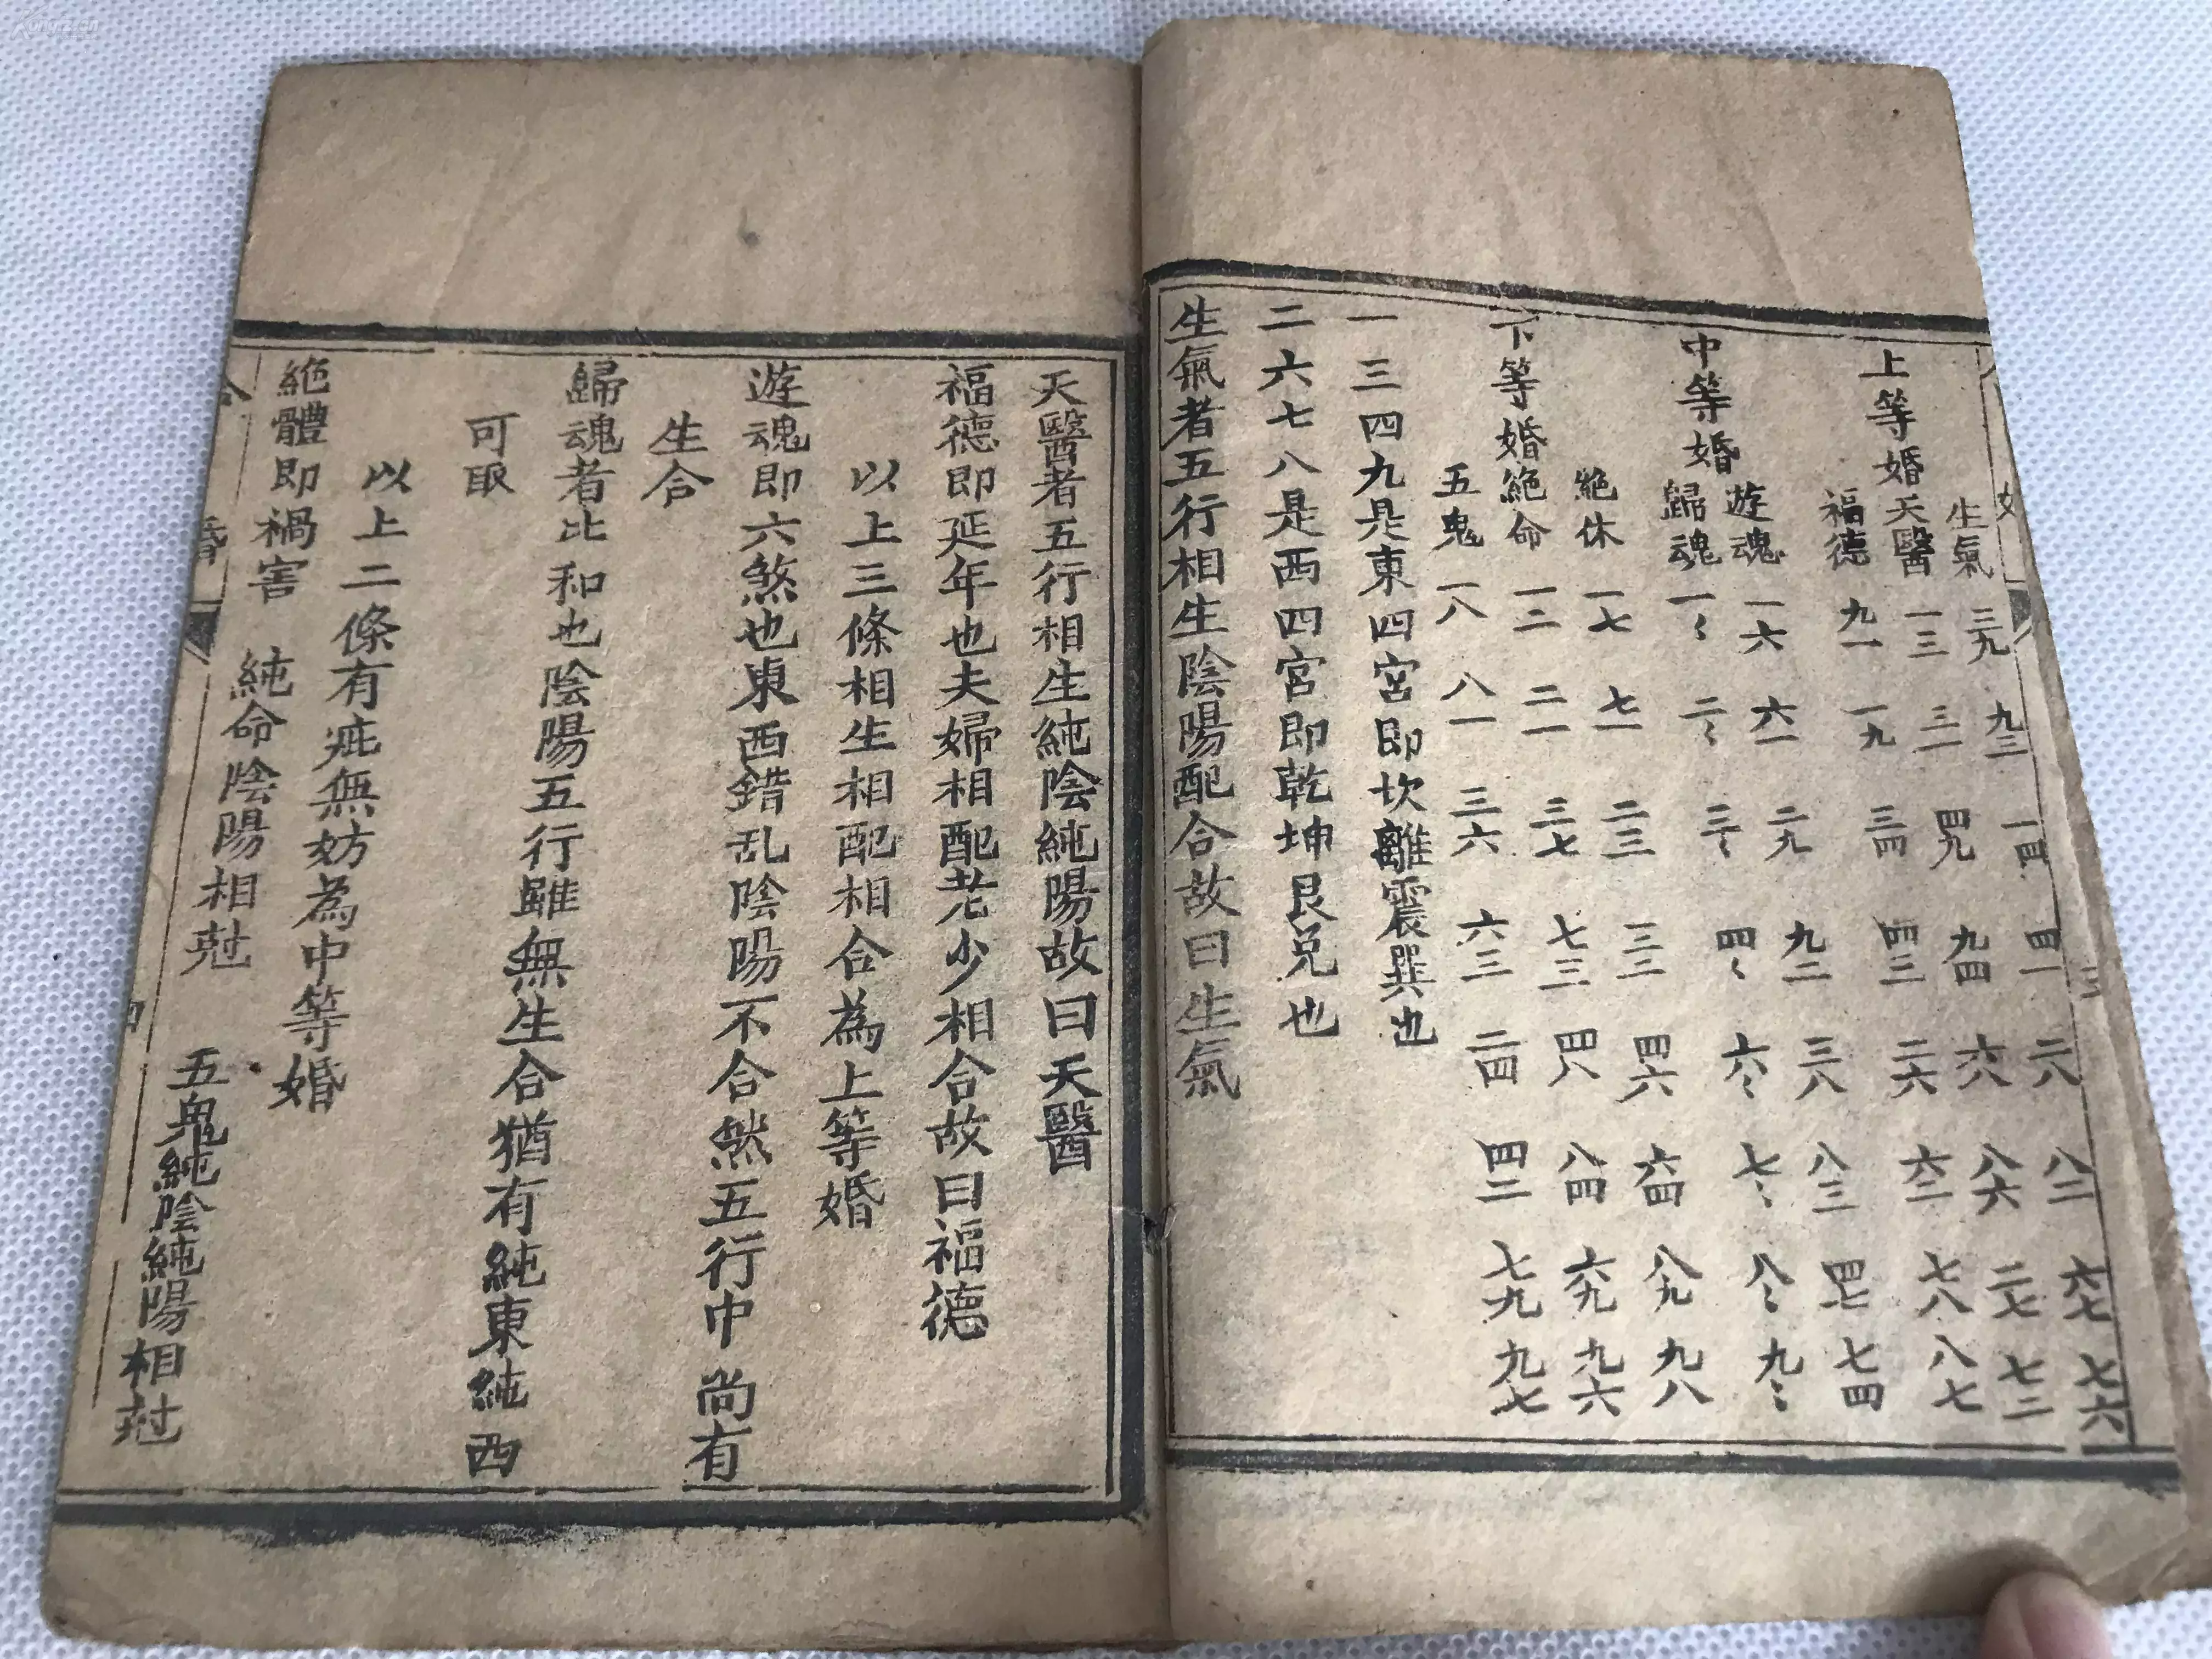 上等婚
生氣 三九 九三 一四 四一 二八 八二 六七 七六
天醫 一三 三一 四九 九四 六八 八六 二七 七二
福德 九一 一九 三四 四三 二六 六二 七八 八七
中等婚
遊魂 一六 六一 二九 九二 三八 八三 四七 七四
歸魂 一〻 二〻 三〻 四〻 六〻 七〻 八〻 九〻
下等婚
絶休 一七 七一 二三 三二 四六 六四 八九 九八
絶命 一二 二一 三七 七三 四八 八四 六九 九六
五鬼 一八 八一 三六 六三 二四 四二 七九 九七
一三四九是東四宮即坎離震巽也
二六七八是西四宮即乾坤艮兑也
生氣者五行相生陰陽配合故曰生氣
天醫者五行相生純陰純陽故曰天醫
福德即延年也夫婦相配老少相合故曰福德
以上三條相生相配相合為上等婚
遊魂即六煞也東西錯乱陰陽不合然五行中尚有
生合
歸魂者比和也陰陽五行雖無生合猶有純東純西
可取
以上二條有疵無妨為中等婚
絶體即禍害 純命陰陽相尅 五鬼純陰純陽相尅